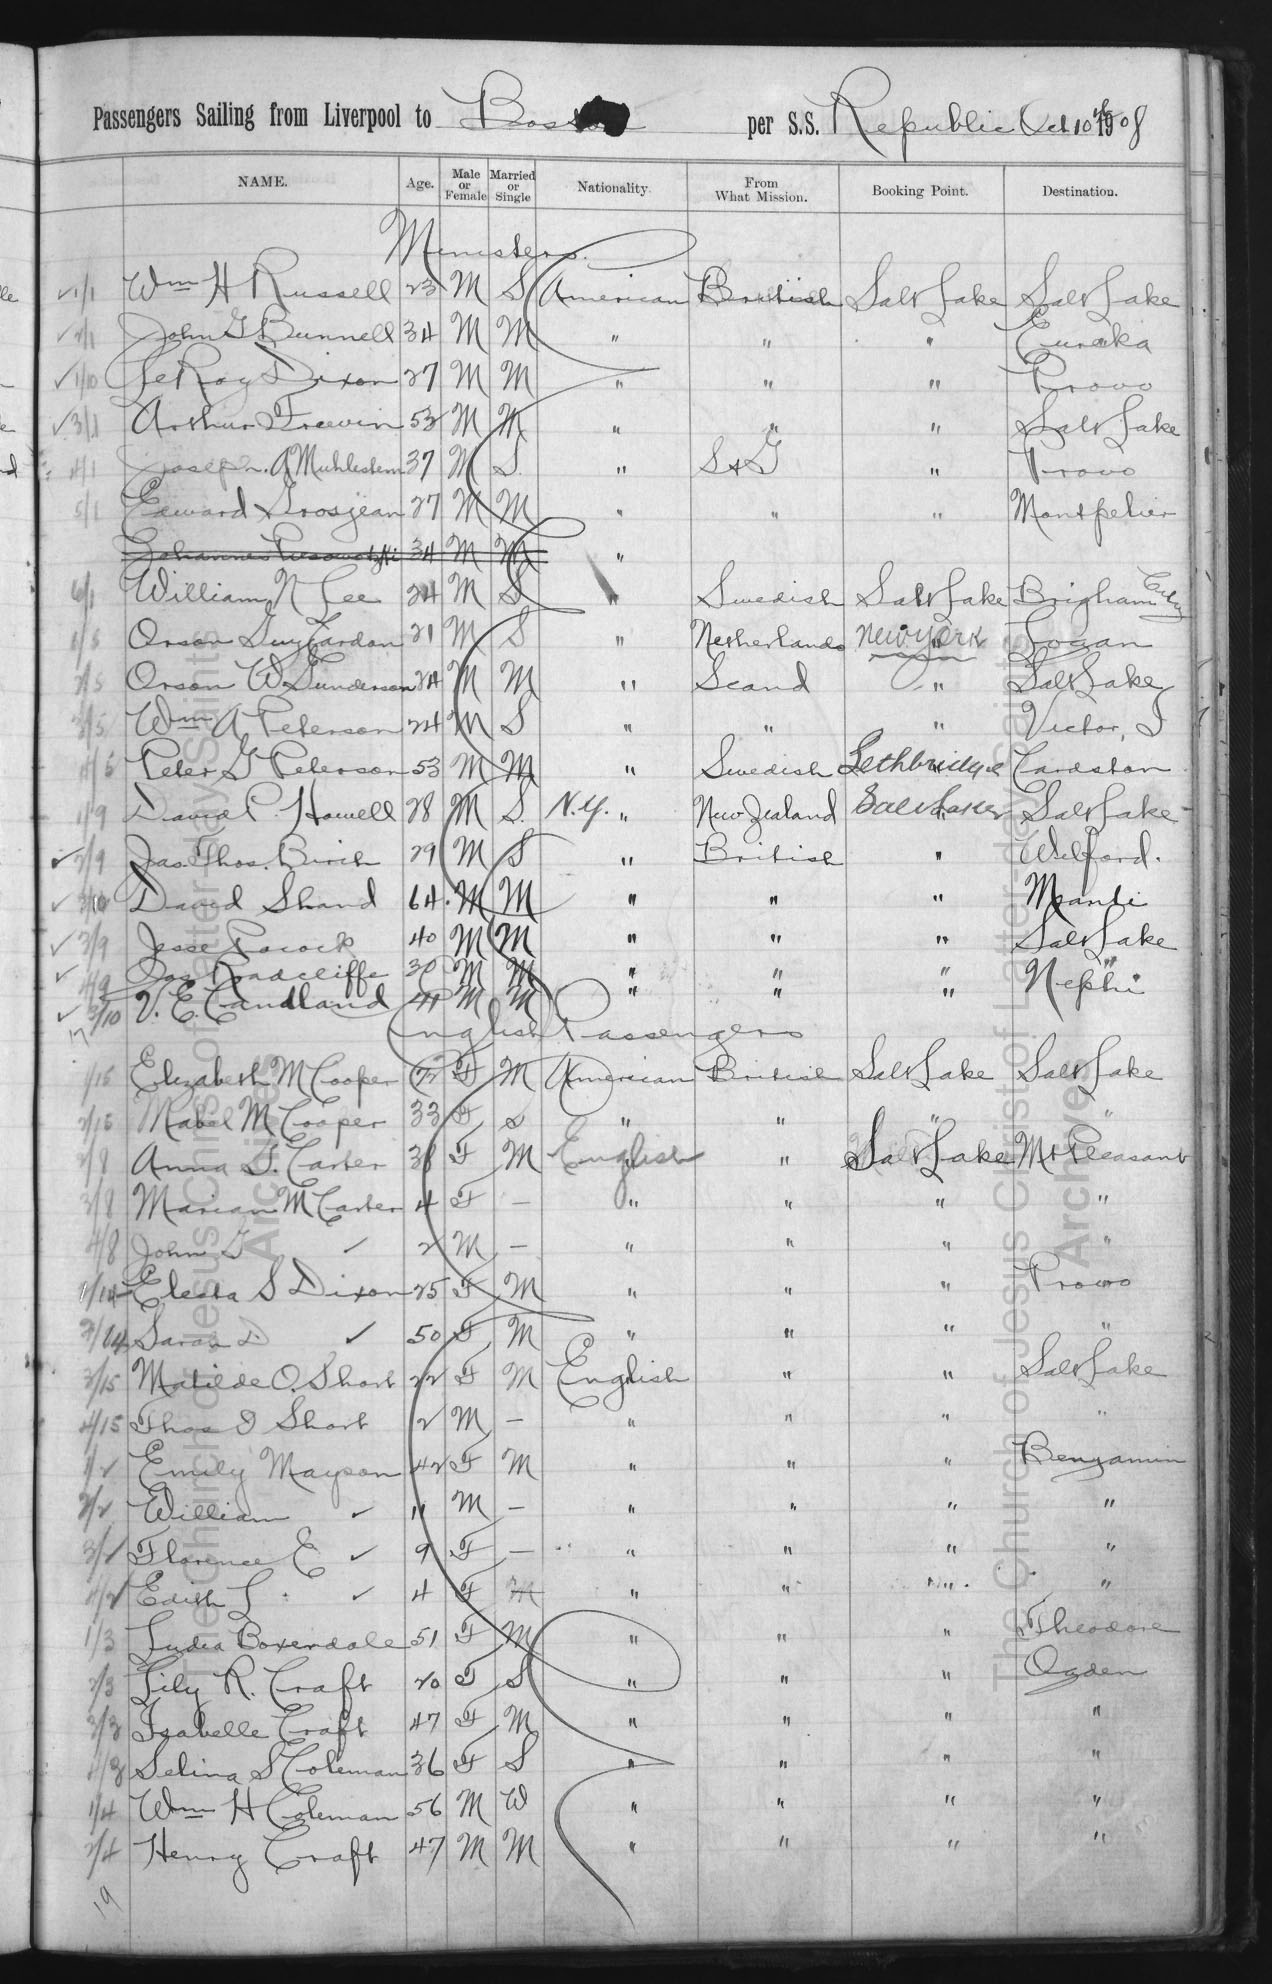 Passengers Sailing from Liverpool to Boston per S.S. Republic Oct 10th 1908
NAME. Age. Male or Female Married or Single Nationality. From What Mission. Booking Point. Destination.
Ministers.
✓1/1 Wm H Russell 23 M S American British Salt Lake Salt Lake
✓2/1 John G Bunnell 34 M M " " " Eureka
✓1/10 LeRoy Dixon 27 M M " " " Provo
✓3/1 Arthur Frewin 53 M M " " " Salt Lake
4/1 Joseph A Muhlestein 37 M S. " S & G " Provo
5/1 Edward Grosjean 27 M M " " " Montpelier
Johannes 34 M M "
6/1 William N Lee 24 M S " Swedish Salt Lake Brigham City
1/5 Orson Guy Cardon 21 M S " Netherlands New York " Logan
2/5 Orson W Gunderson 24 M M " Scand " Salt Lake
3/5 Wm A Peterson 24 M S " " " Victor, I
4/5 Peter G Peterson 53 M M " Swedish Lethbridge " Cardston
1/9 David P. Howell 28 M S. N.Y. " New Zealand Salt Lake " Salt Lake
✓2/9 Jas. Thos. Birch 29 M S " British " Wilford.
✓2/10 David Shand 64 M M " " " Manti
✓3/9 Jesse Pocock 40 M M " " " Salt Lake
✓4/9 Jos Roadcliffe 30 M M " " " "
✓3/10 V. E. Candland 41 M M " " " Nephi
17 English Passengers
1/15 Elizabeth M Cooper F M American British Salt Lake Salt Lake
2/15 Mabel M Cooper 33 F s " " " "
2/8 Anna G. Carter 38 F M English " Salt Lake Mt Pleasant
3/8 Marian M Carter 4 F - " " " "
4/8 John G ✓ 2 M - " " " "
1/14 Electa S Dixon 25 F M " " " Provo
2/14 Sarah D ✓ 50 F M " " " "
3/15 Matilde O. Short 22 F M English " " Salt Lake
4/15 Thos I Short 2 M - " " " "
1/2 Emily Mayson 42 F M " " " Benjamin
2/2 William ✓ 11 M - " " " "
3/2 Florence E ✓ 9 F - " " " "
4/2 Edith L ✓ 4 F M " " " "
1/3 Ludia Boxerdale 51 F M " " " Theodore
2/3 Lily R. Craft 20 F S " " " Ogden
3/3 Isabelle Craft 47 F M " " " "
4/3 Selina S Coleman 36 F S " " " "
1/4 Wm H Coleman 56 M W " " " "
2/4 Henry Craft 47 M M " " " "
19
The Church of Jesus Christ of Latter-day Saints
Archives
The Church of Jesus Christ of Latter-day Saints
Archives